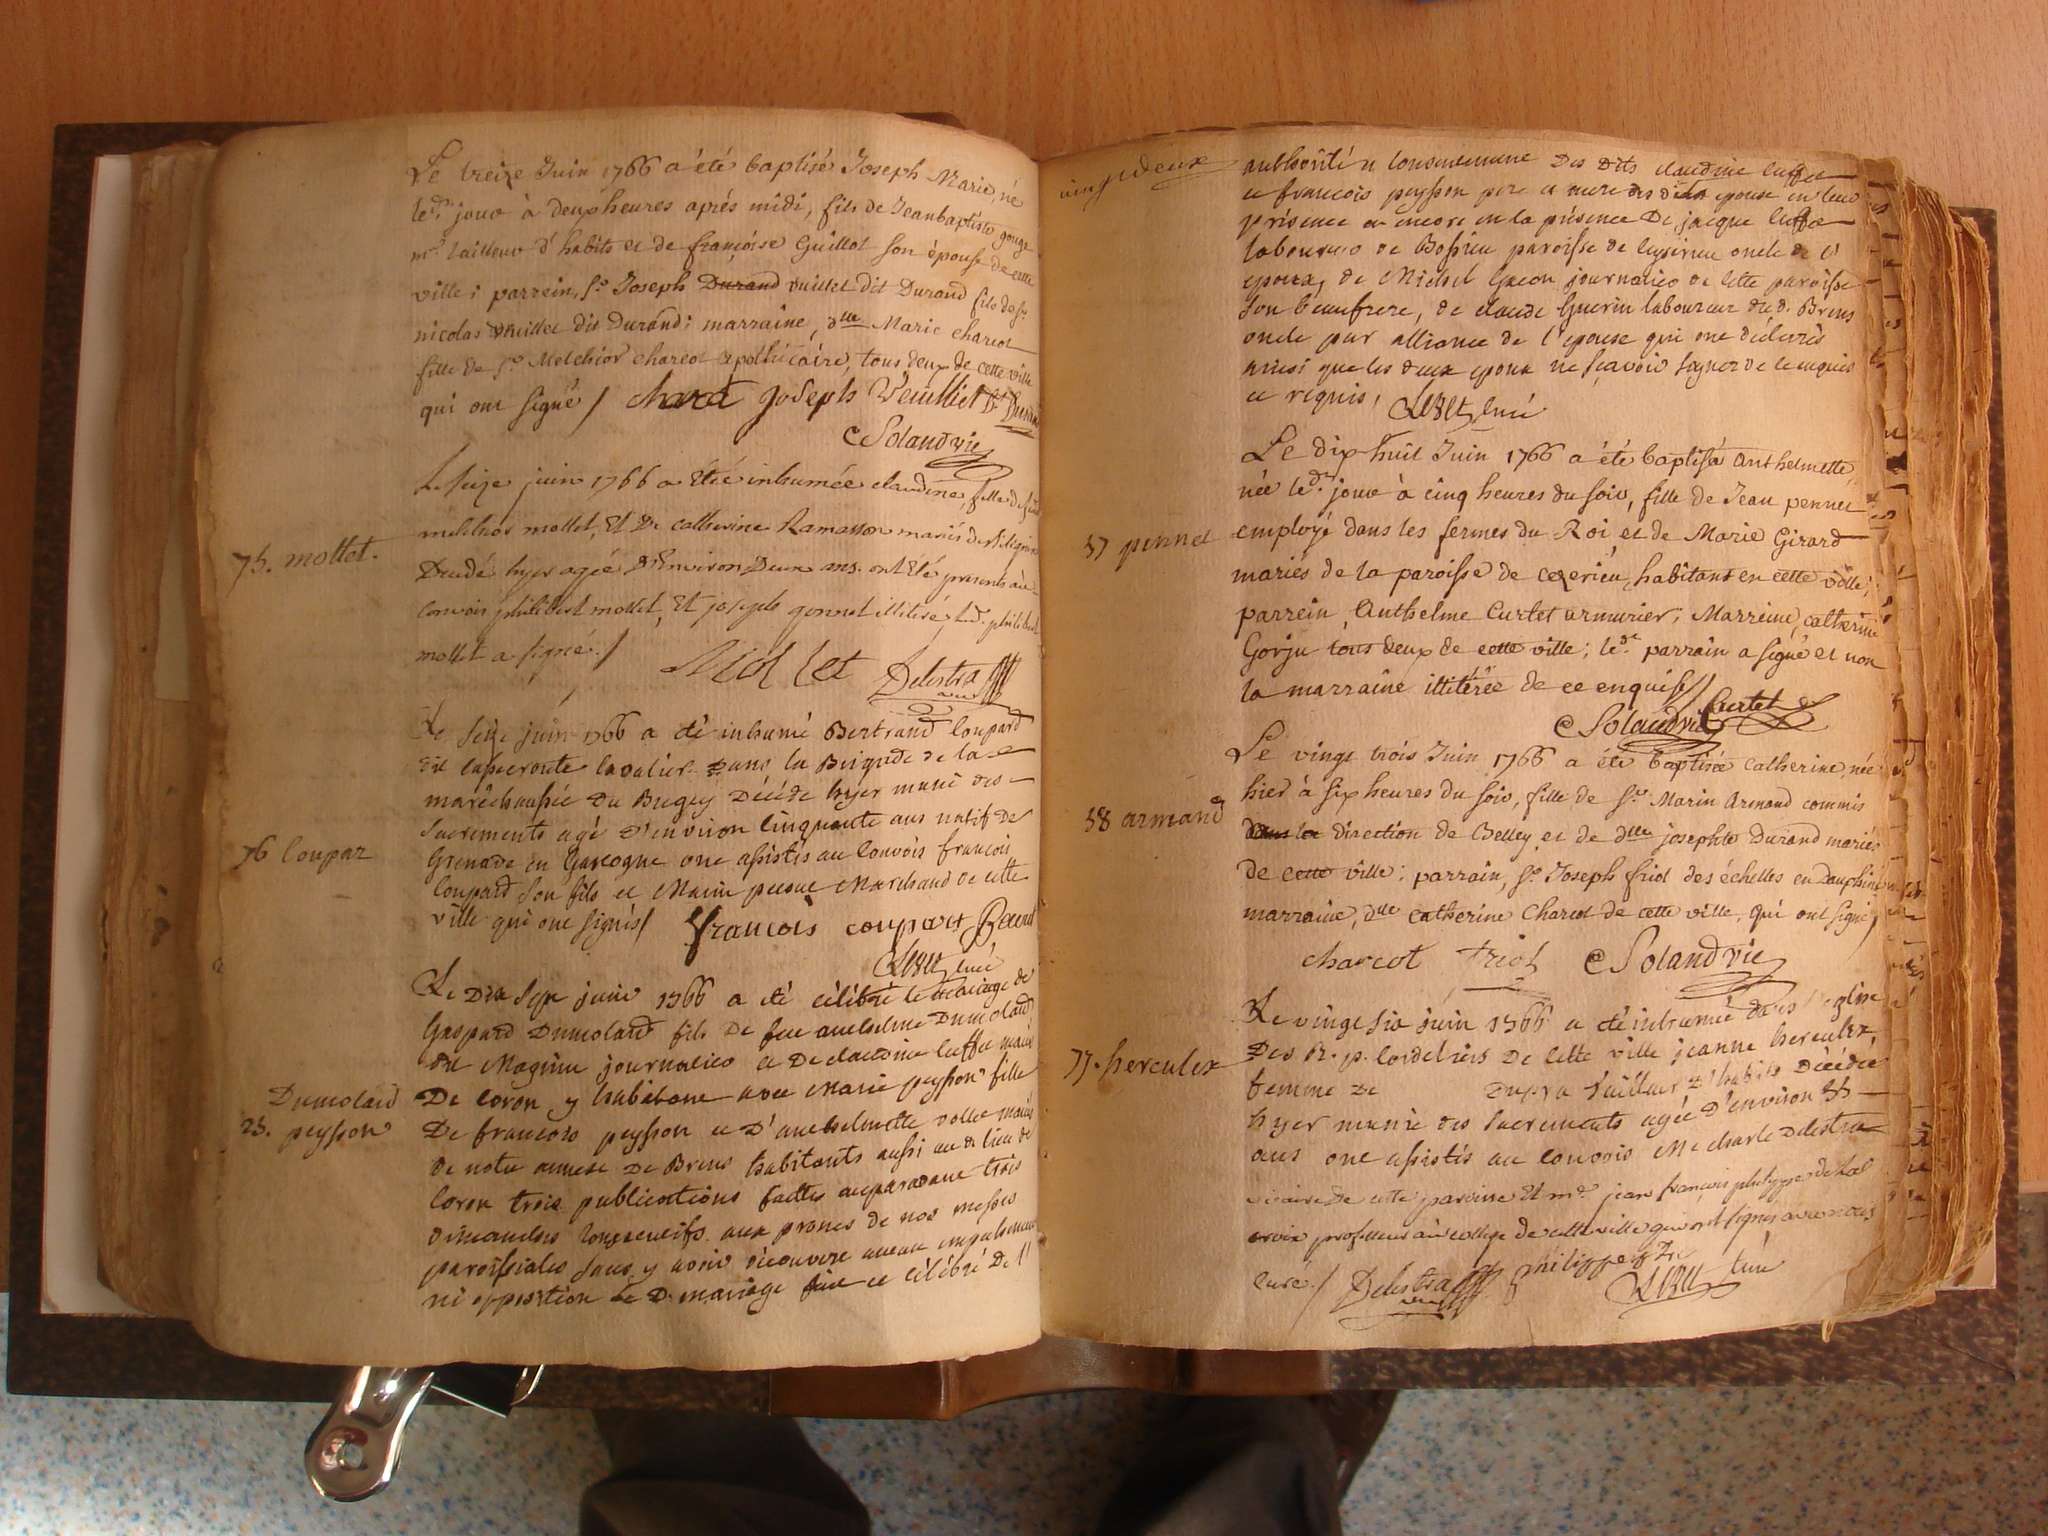 Le treize Juin 1766 a été baptisé Joseph Marie, né
led. jour à deux heures aprés midi, fils de Jeanbaptiste gouge
md. tailleur d'habits et de françoise Guillot son épouse de cette
ville; parrein, Sr. Joseph Durand vuillet dit Durand fils de Sr.
nicolas vuillet dit Durand; marraine, dlle Marie charcot
fille de Sr. Melchior charcot apothicaire, tous deux de cette ville
qui ont signé / charcot Joseph Veuilliet Dt Durand
Solandvic
75. mollet.
Le seize juin 1766 a été inhumée claudine, fille de
melchior mollet, Et De catherine Ramasson mariés de
Décédé hyer agée D'Environ Deux ans. ont Eté presents au
convoir philibert mollet, Et joseph gonnet illitéré, led. philibert
mollet a signé./ Mollet Delestra
76 loupar
Le seize juin 1766 a été inhumé Bertrand loupard
dit cavalier dans la Brigade de la
maréchaussée Du Bugey Décédé hyer muni des
sacrements agé d'environ cinquante ans natif de
Grenade en Gascogne ont assistés au convois françois
loupard son fils et Marin Marchand de cette
ville qui ont signés / françois coupart
curé
Dumolard
25. peysson
Le Dix sept juin 1766 a été célébré le mariage de
Gaspard Dumolard fils de feu anthelme Dumolard
de Magnieu journalier et De claudine luffet mariés
De coron y habitant avec Marie peysson fille
De françois peysson et D'anthelmette vollet mariés
de notre annexe De Brens habitants aussi au d. lieu de
coron trois publications faittes auparavant trois
dimanches consecutifs aux prones de nos messes
paroissiales sans y avoir découvert aucun empechement
ni opposition le D. mariage fait et célébré De l'
vingt deux
authorité et consentement Des Dits claudine luffet
et françois peysson pere et mere des dits epoux en leur
présence et encore en la présence De jacque luffet
laboureur de Bossieu paroisse de oncle de l'
epoux, de Michel journalier de cette paroisse
son beaufrere, de claude Guerin laboureur du d. Brens
oncle par alliance de l'epouse qui ont déclarés
ainsi que les deux epoux ne sçavoir signer de ce enquis
et requis, curé
57 pennet
Le dix huit Juin 1766 a été baptisée Anthelmette,
née led. jour à cinq heures du soir, fille de Jean pennet
employé dans les fermes du Roi et de Marie Girard
mariés de la paroisse de cezerieu, habitant en cette ville;
parrein, Anthelme Curtet armurier, Marreine, catherine
Gorju tous deux de cette ville; led. parrain a signé et non
la marraine illitérée de ce enquise / Curtet
Solandvic
58 armand
Le vingt trois Juin 1766 a été baptisée catherine, née
hier à six heures du soir, fille de Sr. Marin Armand commis
dans la direction de Belley, et de dlle josephte Durand mariés
de cette ville; parrain, Sr. Joseph friol des échelles en Dauphiné
marraine, dlle catherine Charcot de cette ville, qui ont signé /
charcot friol Solandvic
77. herculex
Le vingt six juin 1766 a été inhumée dans l'eglise
Des R. p. cordeliers De cette ville jeanne herculex
femme De Dupra tailleur D'habits Décédée
hyer munie des sacrements agée D'environ 35
ans ont assistés au convois Me charle Delestra
vicaire de cette paroisse Et md. jean françois philippe de lal
croix professeur au college de cette ville qui ont signés avec nous
curé./ Delestra philippe curé